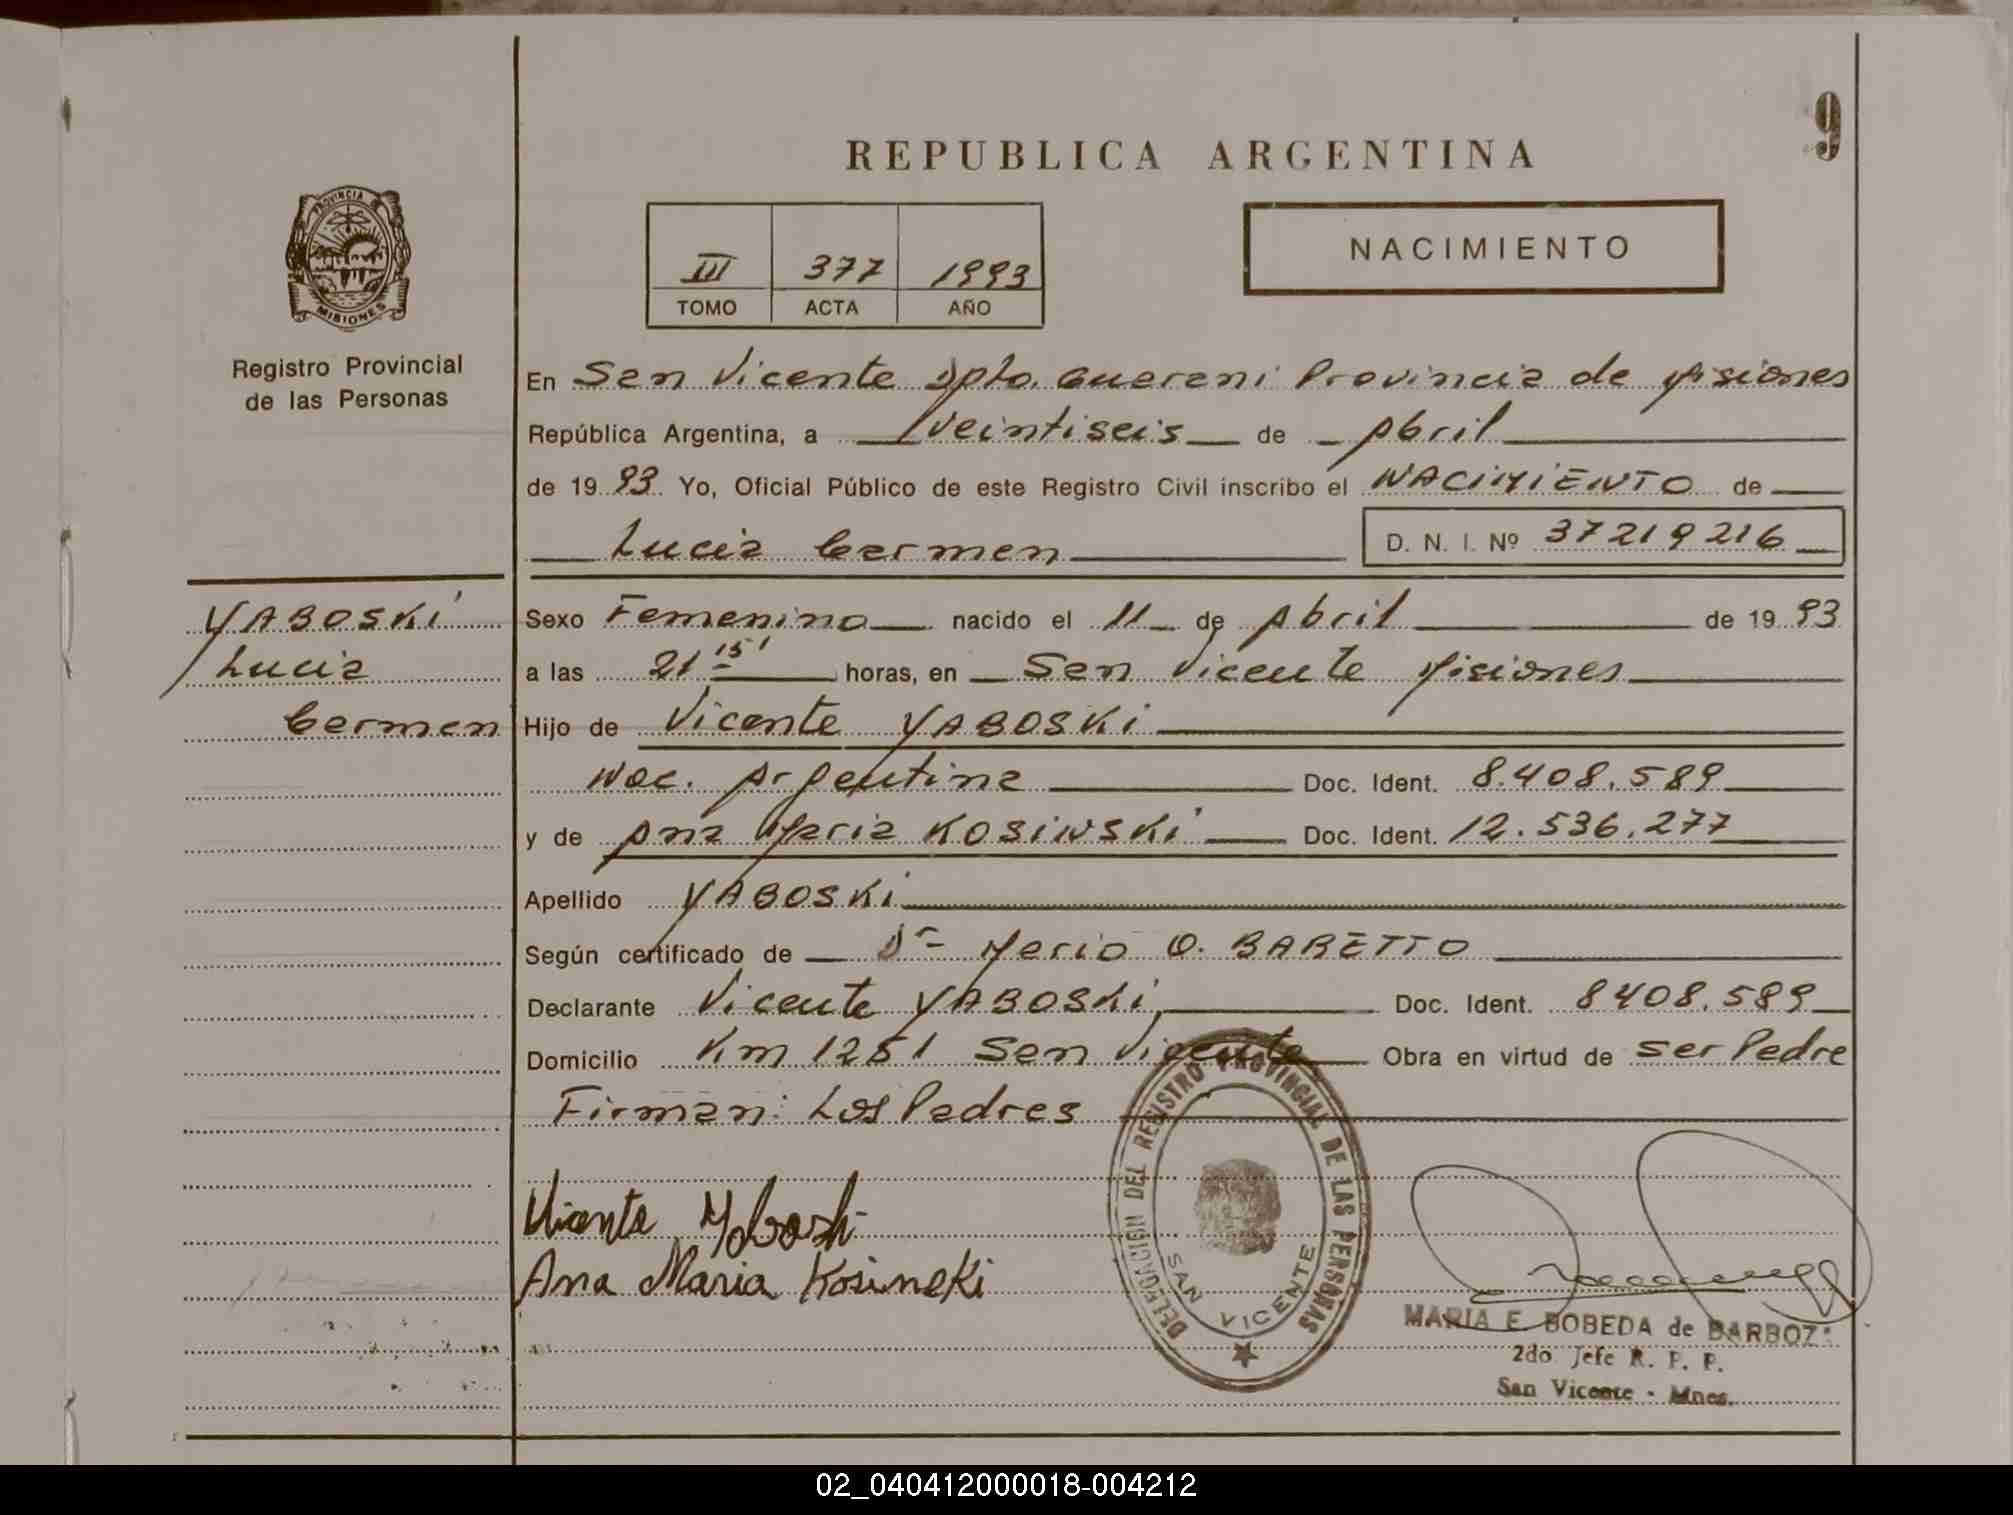 9
REPUBLICA ARGENTINA
PROVINCIA DE
MISIONES
Registro Provincial
de las Personas
III 377 1993
TOMO ACTA AÑO
NACIMIENTO
En San Vicente Dpto. Guarani Provincia de Misiones
República Argentina, a veintiseis de Abril
de 1993 Yo, Oficial Público de este Registro Civil inscribo el NACIMIENTO de
Lucia Carmen D. N. I. Nº 37219216
YABOSKI
Lucia
Carmen
Sexo Femenino nacido el 11 de Abril de 1993
a las 21 15' horas, en San Vicente Misiones
Hijo de Vicente YABOSKI
Nac. Argentina Doc. Ident. 8.408.589
y de Ana Maria KOSINSKI Doc. Ident. 12.536.277
Apellido YABOSKI
Según certificado de Dr Mario O. BARETTO
Declarante Vicente YABOSKI Doc. Ident. 8408.589
Domicilio Km 1251 San Vicente Obra en virtud de ser Padre
Firman: Los Padres
Vicente Yaboski
Ana Maria Kosinski
DELEGACION DEL REGISTRO PROVINCIAL DE LAS PERSONAS
SAN VICENTE
MARIA E. BOBEDA de BARBOZA
2do Jefe R. P. P.
San Vicente - Mnes.
02_040412000018-004212